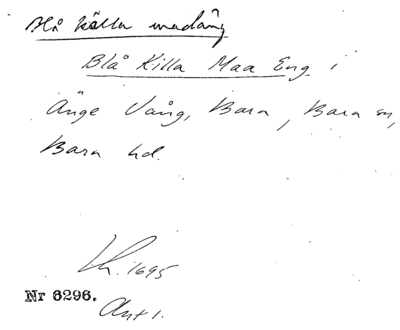 Blå Källa madäng
Blå Killa Maa Eng i
Änge Vång, Bara, Bara sn,
Bara hd.
Lh. 1695
Nr 6296.
Akt 1.